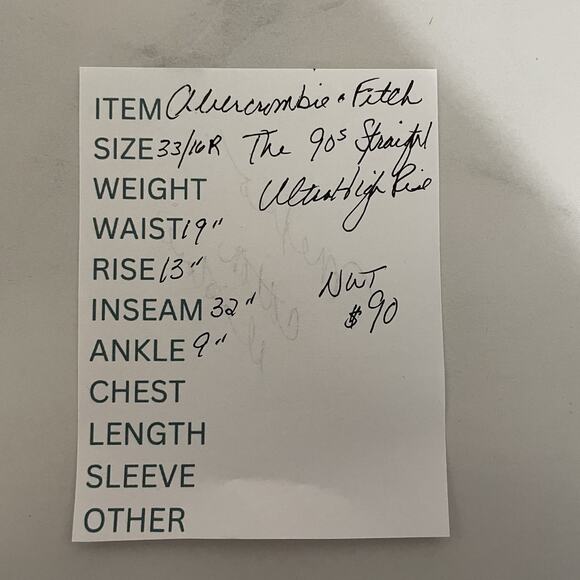 ITEM Abercrombie & Fitch
SIZE 33/16R The 90s Straight
WEIGHT Ultra High Rise
WAIST 19"
RISE 13"
INSEAM 32" NWT
$90
ANKLE 9"
CHEST
LENGTH
SLEEVE
OTHER